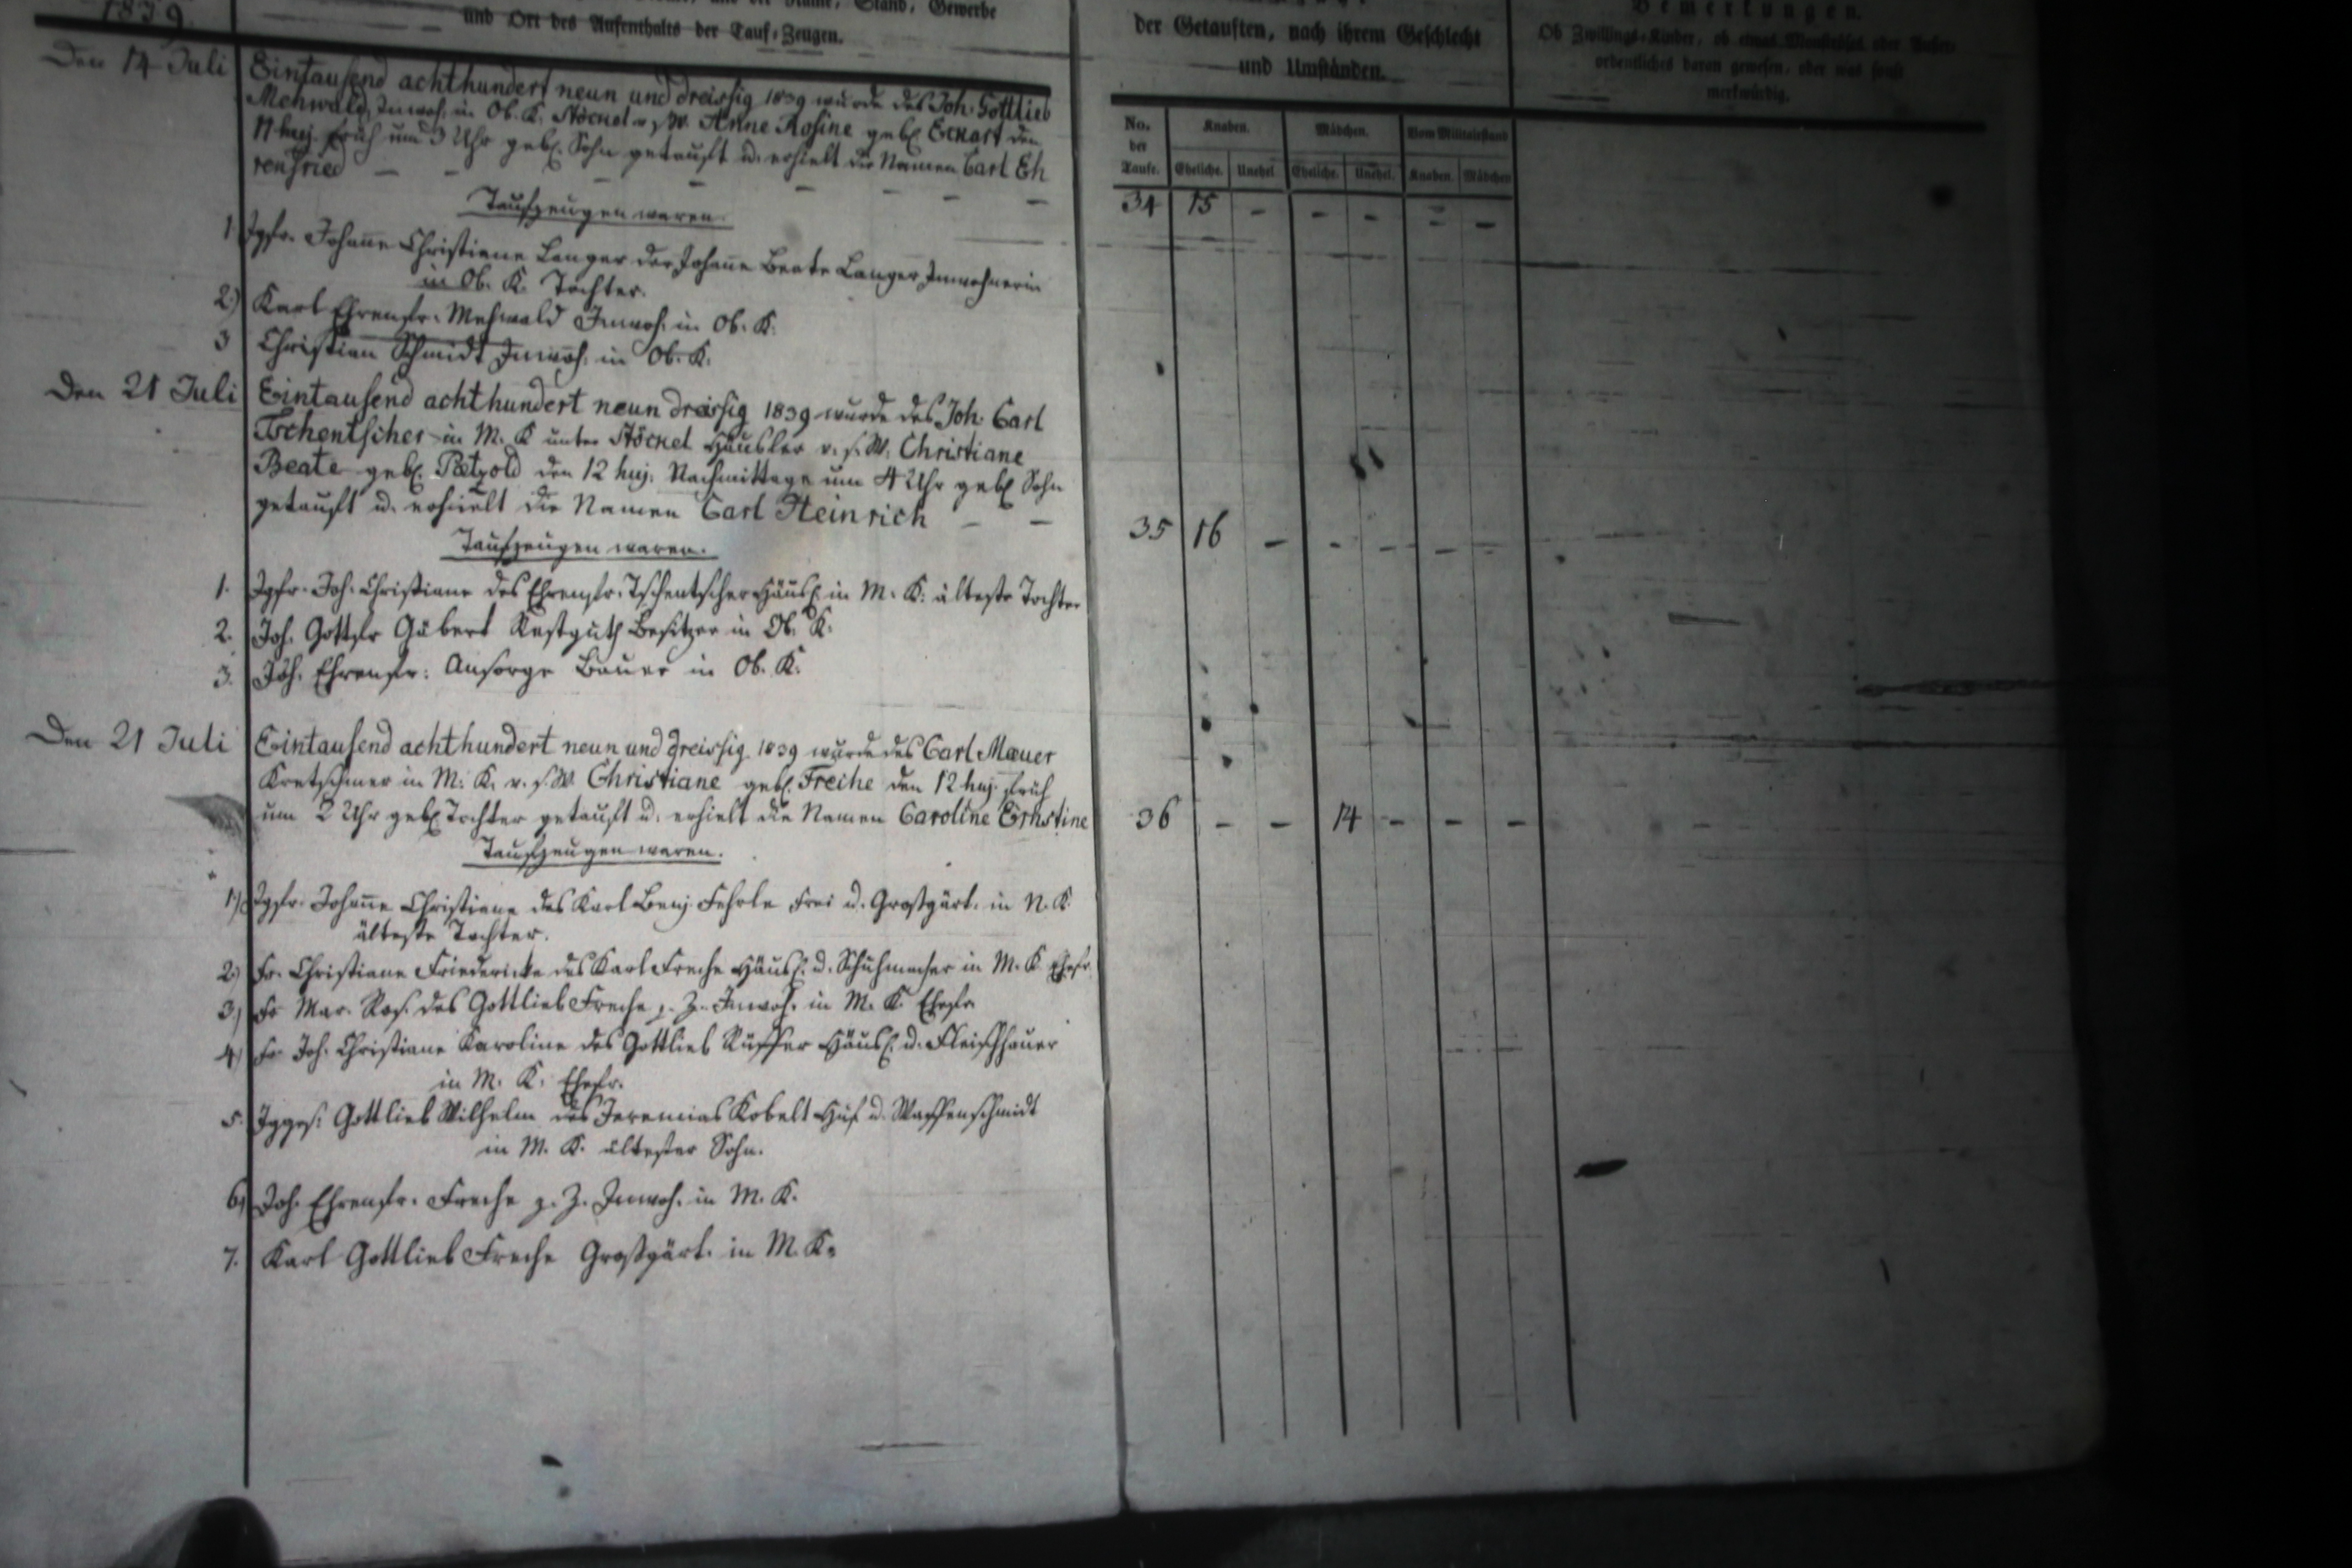 1839.
Stand, Gewerbe
und Ort des Aufenthalts der Tauf-Zeugen.
der Getauften, nach ihrem Geschlecht
und Umständen.
Bemerkungen.
Ob Zwillings-Kinder, ob etwas oder Außer-
ordentliches daran gewesen, oder was sonst
merkwürdig.
No. der Taufe.
Knaben.
Mädchen.
Vom Militairstand
Eheliche.
Unehel.
Eheliche.
Unehel.
Knaben.
Mädchen
Den 14 Juli
Eintausend achthundert neun und dreissig 1839 wurde des Joh. Gottlieb
Mehwald, Inwoh. in Ob. K. Stöckel v. s. W. Anne Rosine geb. Eckart den
11 huj. früh um 3 Uhr geb. Sohn getauft u. erhielt die Namen Carl Eh
renfried — — — — — — —
34 15 - - - - -
Taufzeugen waren.
1 Jgfr. Johanne Christiane Langer der Johanne Beate Langer Inwohnerin
in Ob. K. Tochter.
2.) Karl Ehrenfr. Mehwald Inwoh. in Ob. K.
3 Christian Schmidt Inwoh. in Ob. K.
Den 21 Juli
Eintausend achthundert neun dreissig 1839 wurde des Joh. Carl
Tschentscher in M. K unter Stöckel Häusler v. s. W. Christiane
Beate geb. Pætzold den 12 huj. Nachmittage um 4 Uhr geb. Sohn
getauft u. erhielt die Namen Carl Heinrich — —
35 16 - - - - -
Taufzeugen waren.
1. Jgfr. Joh. Christiane des Ehrenfr. Tschentscher Häusl. in M. K. älteste Tochter
2. Joh. Gottfr Gübert Restguth Besitzer in Ob. K.
3. Joh. Ehrenfr: Ansorge Bauer in Ob. K.
Den 21 Juli
Eintausend achthundert neun und dreissig 1839 wurde des Carl Mæuer
Kretschmer in M. K. v. s. W. Christiane geb. Freche den 12 huj. früh
um 2 Uhr geb. Tochter getauft u. erhielt die Namen Caroline Ernstine
36 - - 14 - - -
Taufzeugen waren.
1.) Jgfr. Johanne Christiane des Karl Benj. Fehrle Frei u. Großgärt. in N. K
älteste Tochter.
2.) Fr. Christiane Friedericke des Karl Freche Häusl. u. Schuhmacher in M. K Ehefr.
3.) Fr Mar. Ros. des Gottlieb Freche z. Z. Inwoh. in M. K. Ehefr.
4.) Fr Joh. Christiane Karoline des Gottlieb Rüffer Häusl. u. Fleischhauer
in M. K. Ehefr.
5. Jgges: Gottlieb Wilhelm des Jeremias Kobelt u. Waffenschmidt
in M. K. ältester Sohn.
6.) Joh. Ehrenfr. Freche z. Z. Inwoh. in M. K.
7. Karl Gottlieb Freche Großgärt. in M. K.